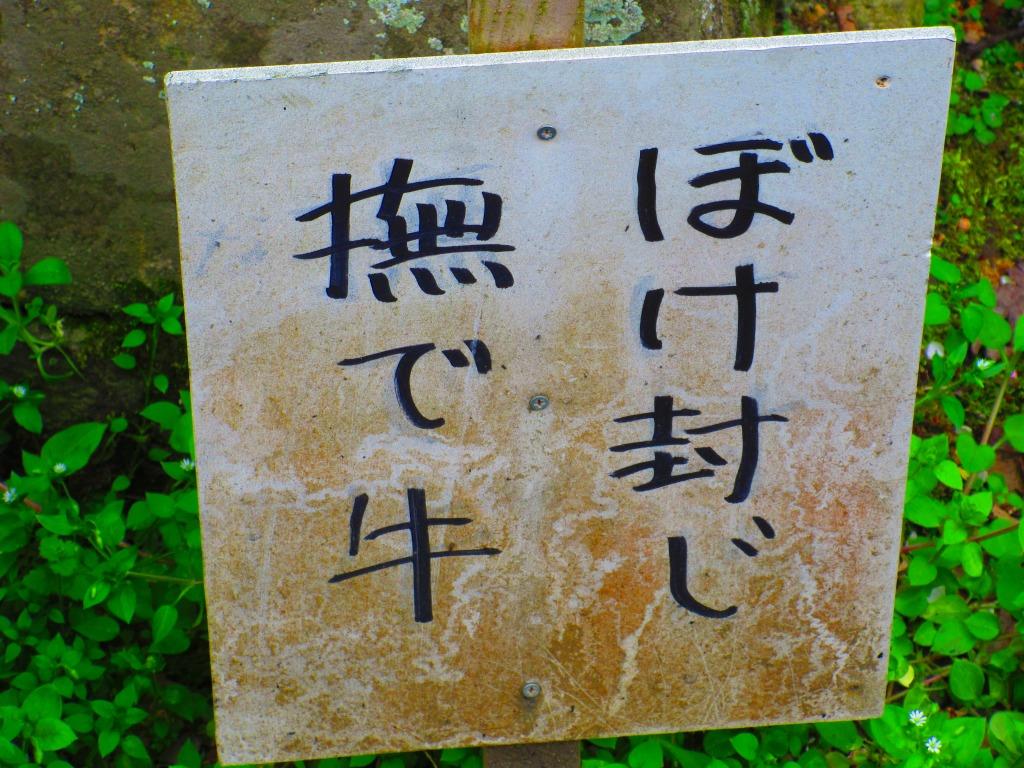 ぼけ封じ
撫で牛